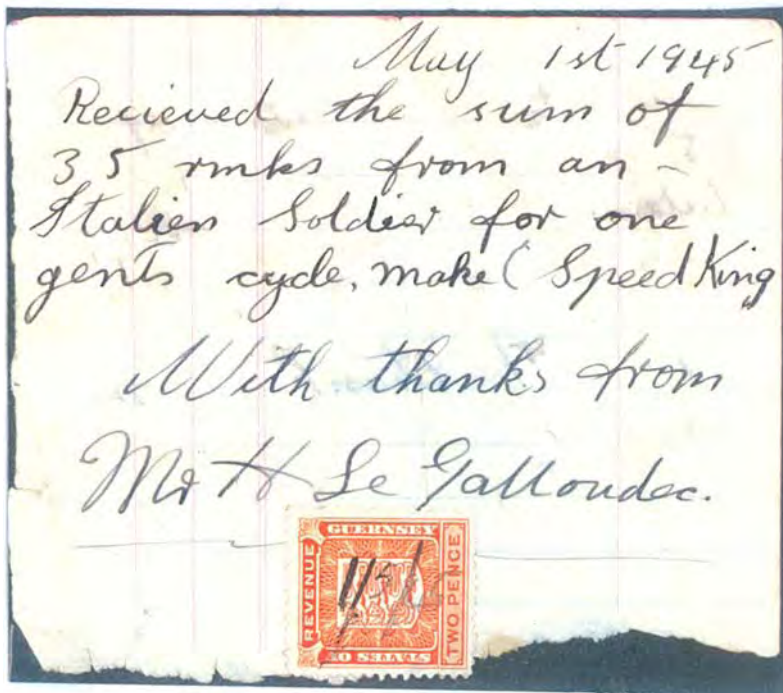 May 1st 1945
Recieved the sum of
35 rmks from an -
Italien Soldier for one
gents cycle, make ( Speed King
With thanks from
Mr H Le Galloudec.
GUERNSEY
REVENUE
TWO PENCE
STATES OF